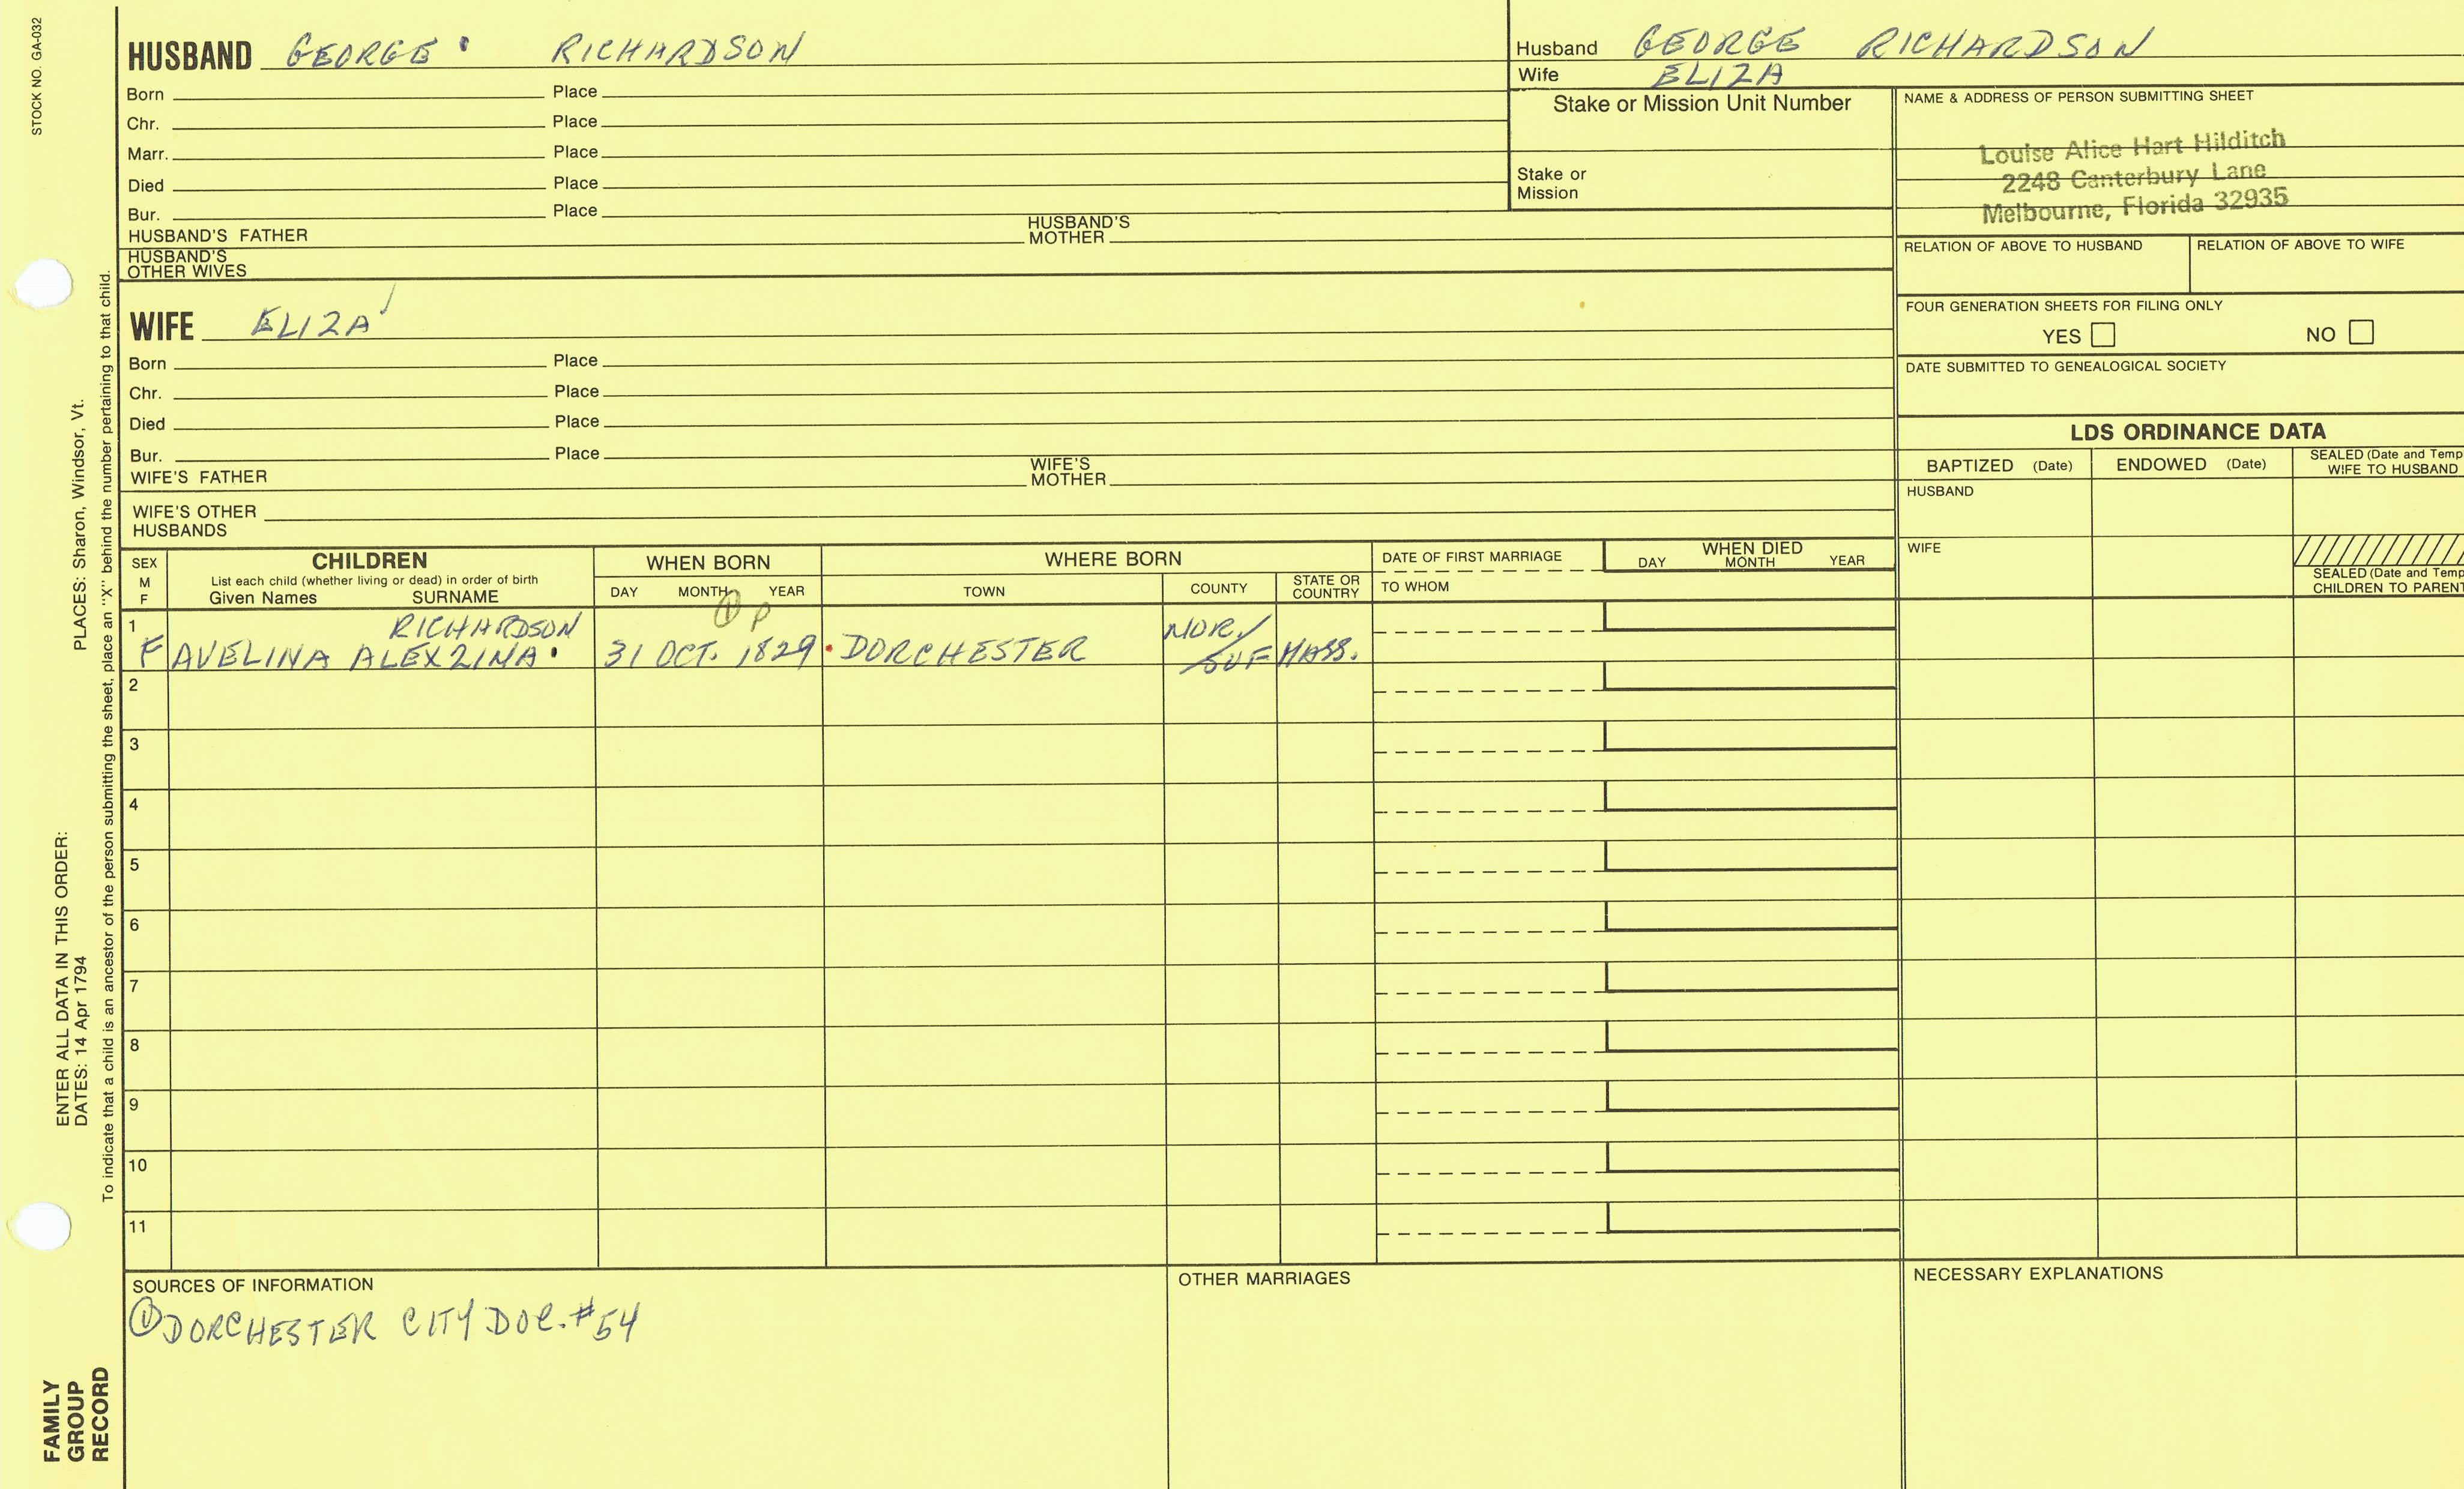 STOCK NO. GA-032
HUSBAND GEORGE RICHARDSON
Born Place
Chr. Place
Marr. Place
Died Place
Bur. Place
HUSBAND'S FATHER HUSBAND'S MOTHER
HUSBAND'S OTHER WIVES
Husband GEORGE RICHARDSON
Wife ELIZA
Stake or Mission Unit Number
Stake or Mission
NAME & ADDRESS OF PERSON SUBMITTING SHEET
Louise Alice Hart Hilditch
2248 Canterbury Lane
Melbourne, Florida 32935
RELATION OF ABOVE TO HUSBAND RELATION OF ABOVE TO WIFE
FOUR GENERATION SHEETS FOR FILING ONLY
YES NO
DATE SUBMITTED TO GENEALOGICAL SOCIETY
WIFE ELIZA
Born Place
Chr. Place
Died Place
Bur. Place
WIFE'S FATHER WIFE'S MOTHER
WIFE'S OTHER HUSBANDS
LDS ORDINANCE DATA
BAPTIZED (Date) ENDOWED (Date) SEALED (Date and Temp
WIFE TO HUSBAND
HUSBAND
WIFE
SEALED (Date and Temp
CHILDREN TO PARENT
SEX M F
CHILDREN
List each child (whether living or dead) in order of birth
Given Names SURNAME
WHEN BORN
DAY MONTH YEAR
WHERE BORN
TOWN COUNTY STATE OR COUNTRY
DATE OF FIRST MARRIAGE
TO WHOM
WHEN DIED
DAY MONTH YEAR
1 RICHARDSON ① P NOR/
F AVELINA ALEXZINA 31 OCT. 1829 DORCHESTER SUF MASS.
2
3
4
5
6
7
8
9
10
11
SOURCES OF INFORMATION
① DORCHESTER CITY DOC. #54
OTHER MARRIAGES
NECESSARY EXPLANATIONS
ENTER ALL DATA IN THIS ORDER:
DATES: 14 Apr 1794 PLACES: Sharon, Windsor, Vt.
To indicate that a child is an ancestor of the person submitting the sheet, place an "X" behind the number pertaining to that child.
FAMILY
GROUP
RECORD